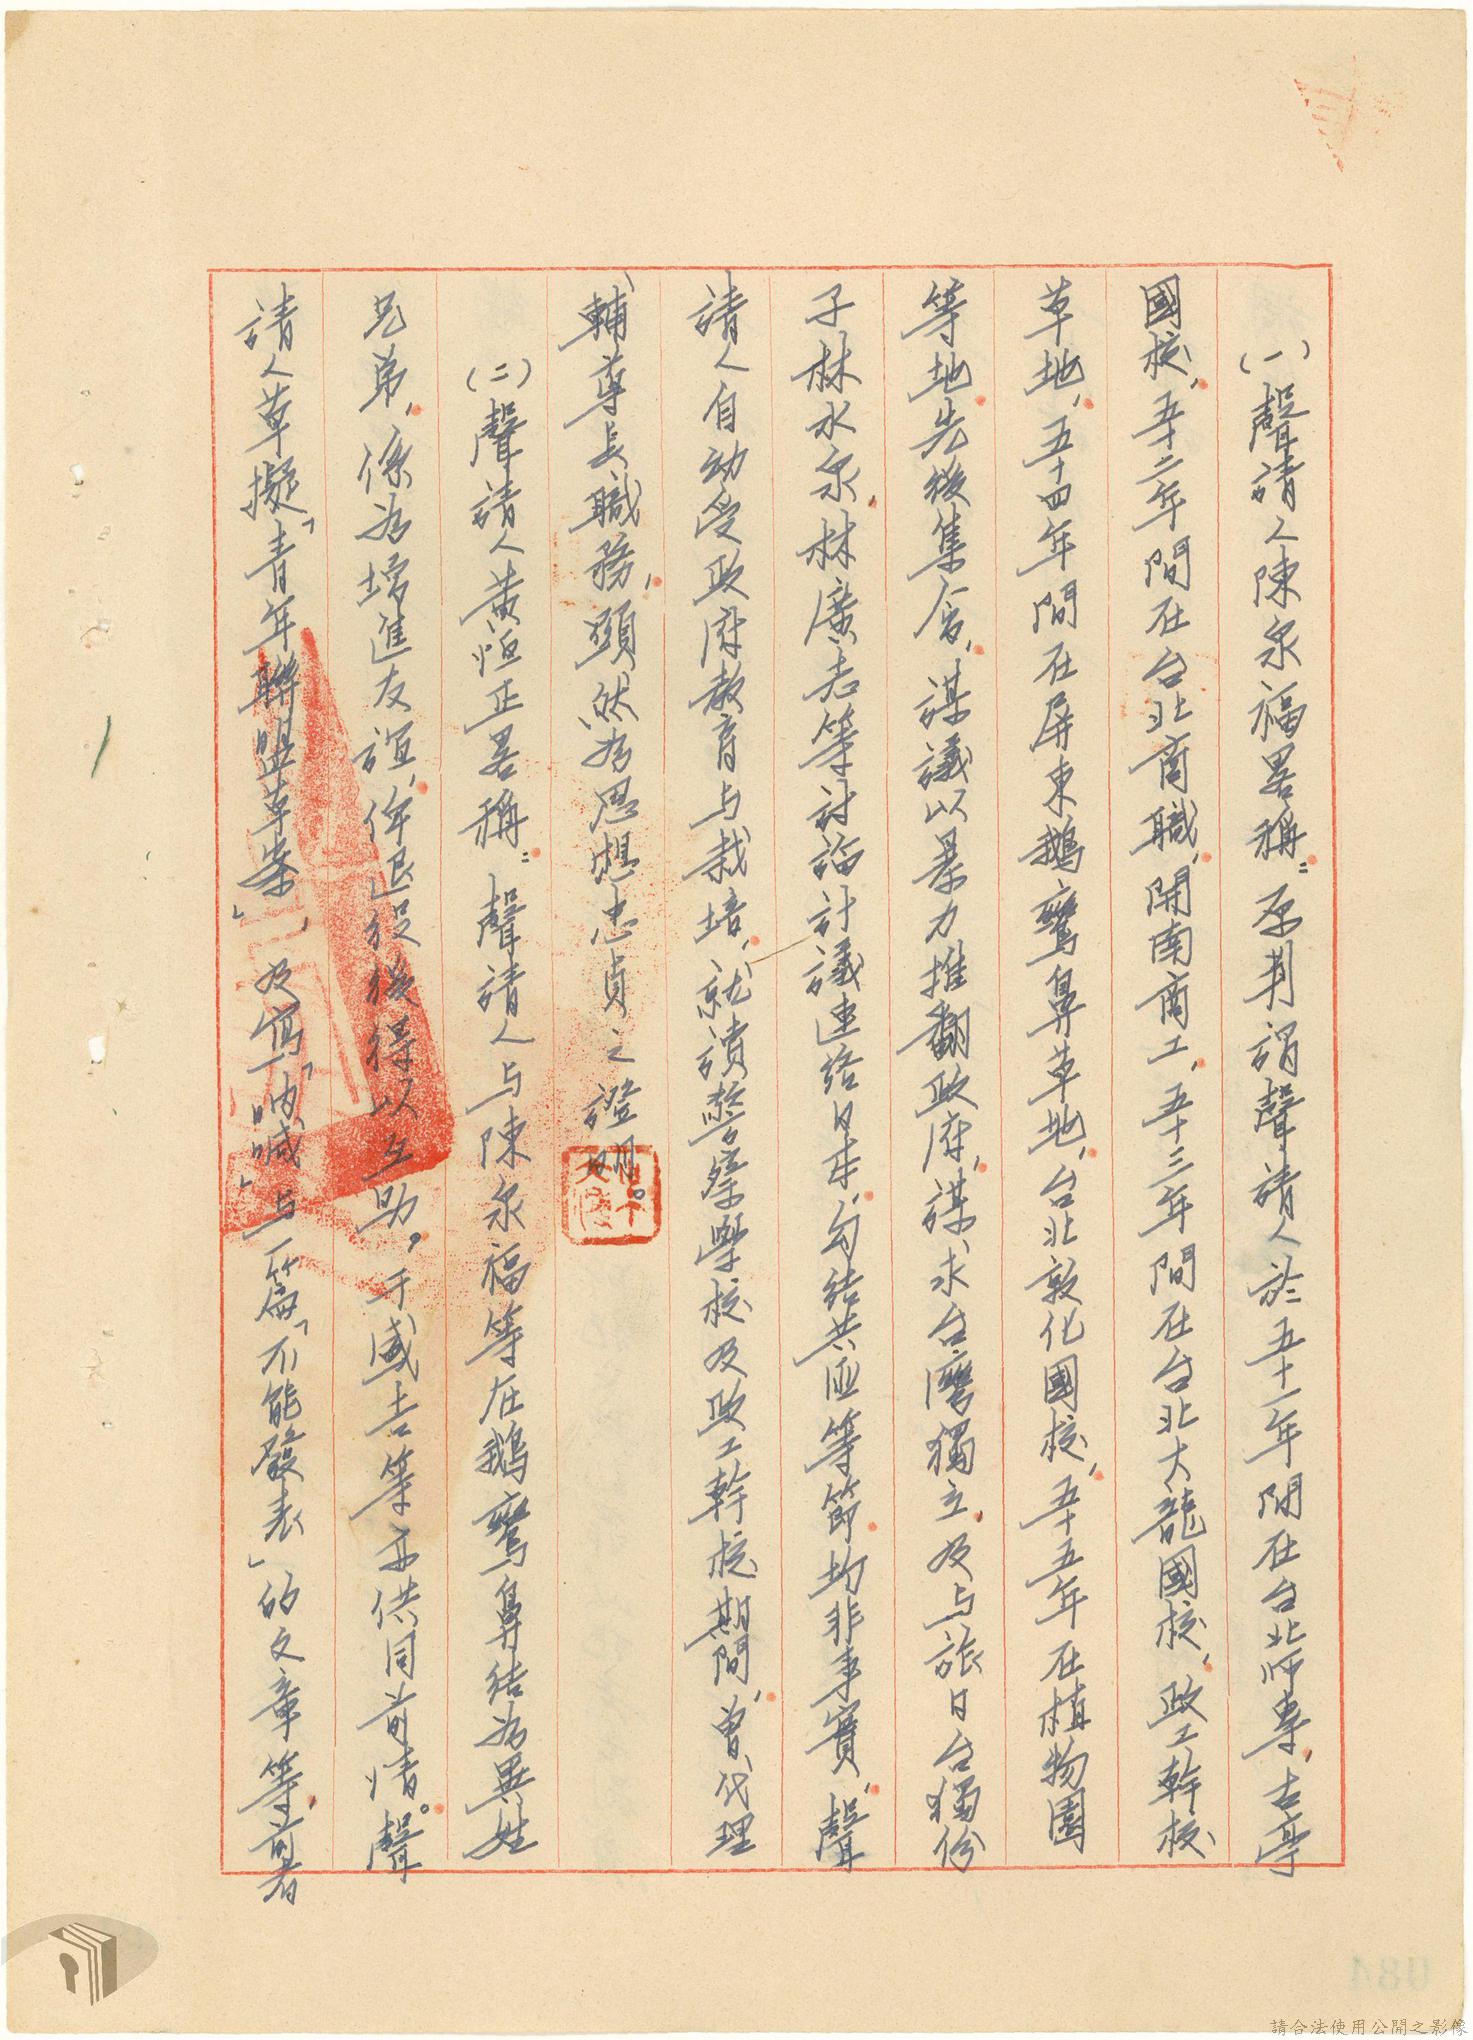 (一)聲請人陳泉福畧稱：原判謂聲請人於五十一年間在台北師專,古亭
國校,五十二年間在台北商職,開南商工,五十三年間在台北大龍國校,政工幹校
草地,五十四年間在屏東鵝鸞鼻草地,台北敦化國校,五十五年在植物園
等地先後集會,謀議以暴力推翻政府,謀求台灣獨立,及与旅日台獨份
子林水泉,林廣志等討論計議連絡日本,勾結共匪等節,均非事實,聲
請人自动受政府教育与栽培,就讀警察學校及政工幹校期間,曾代理
輔導長職務,顯然為思想忠貞之證明。
(二)聲請人黃恒正畧稱：聲請人与陳泉福等在鵝鸞鼻結為異姓
兄弟,係為增進友誼,俾退役後得以互助。王盛吉等亦供同前情。聲
請人草擬「青年聯盟草案」,及寫「吶喊」与一篇「不能發表」的文章等,前者
請合法使用公開之影像